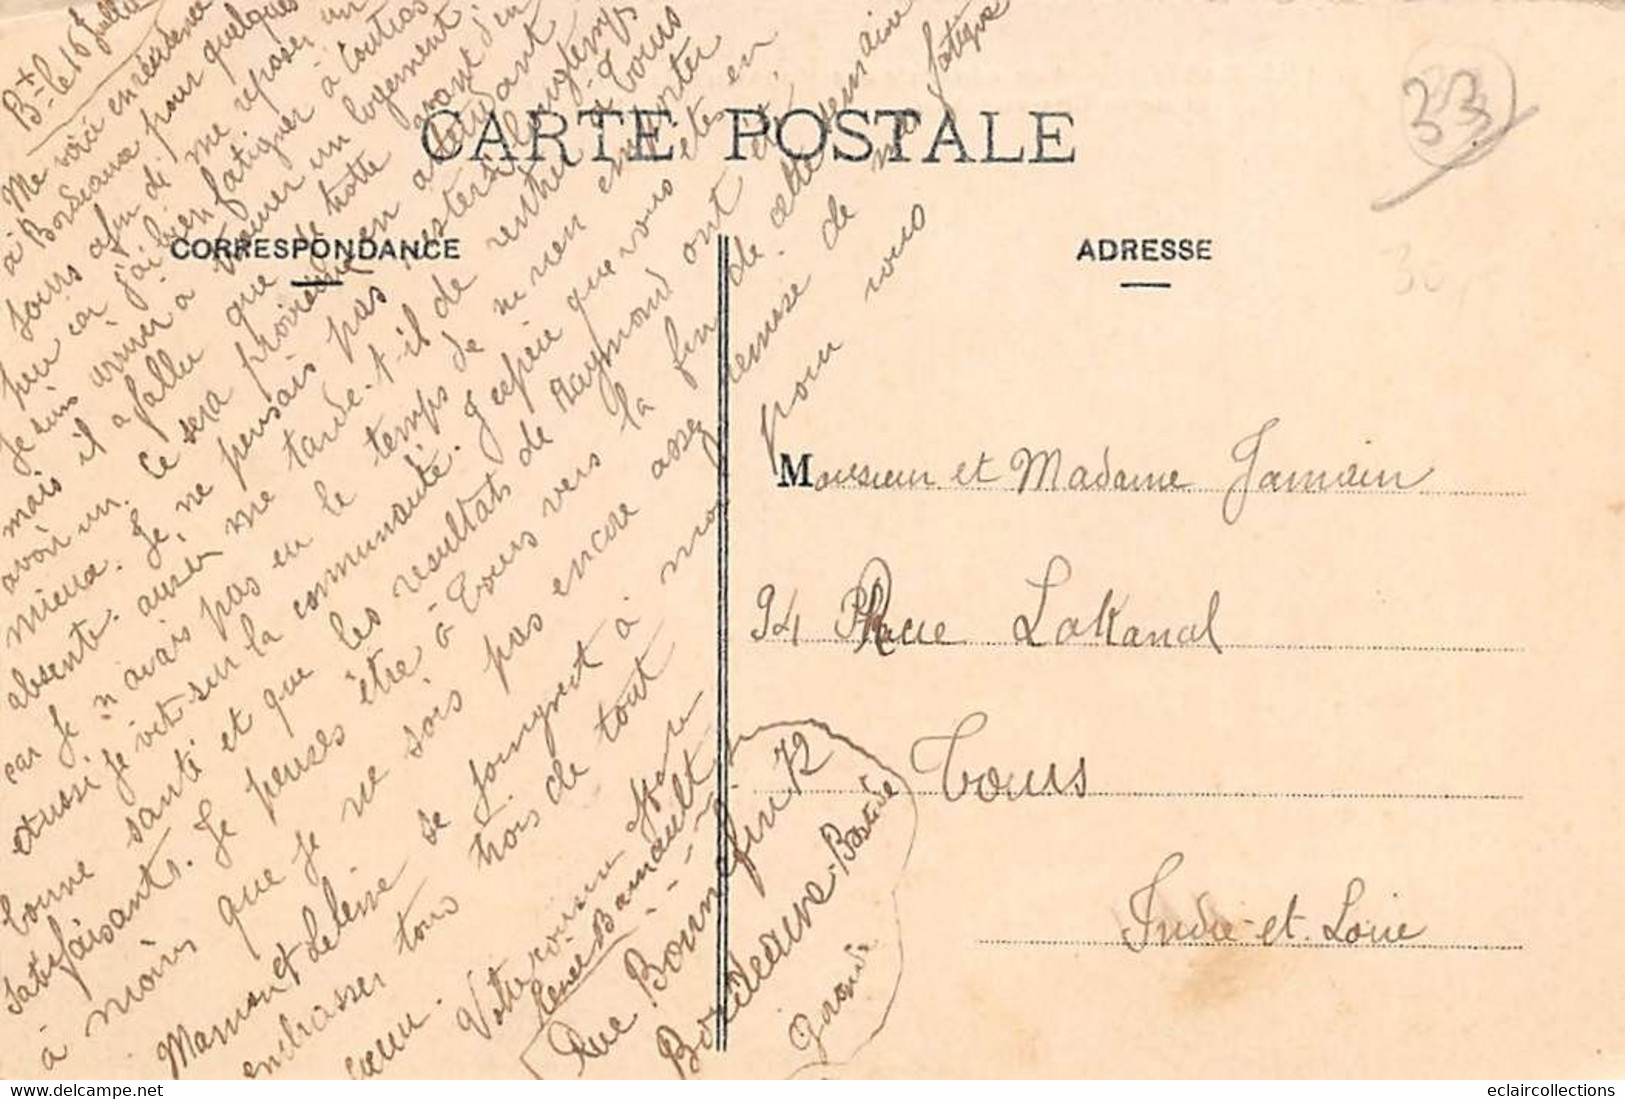 33
CARTE POSTALE
CORRESPONDANCE
ADRESSE
Bx le 16 Juillet
Me voici en résidence
à Bordeaux pour quelques
jours afin de me reposer un
peu car j'ai bien fatiguer à Coutras
Je suis arriver à trouver un logement
mais il a fallu que
avoir un. Ce sera
mieux. Je ne pensais pas rester si longtemps
absente. aussi me tarde-t-il de rentrer à Tours
car je n'avais pas eu le temps de ne rien emporter
aussi je vit sur la communauté. J'espère que vous êtes en
bonne santé et que les resultats de Raymond ont été
satisfaisants. Je penses être à Tours vers la fin de cette semaine
à moins que je ne sois pas encore assez remise de ma fatigue
Maman et Helène se joingnent à moi pour vous
embrasser tous trois de tout
cœur.
Votre cousine
Renée Barrault
Rue Bonnefin 72
Bordeaux-Bastide
Gironde
Monsieur et Madame Jamain
94 Rue Lakanal
Tours
Indre-et-Loire
eclaircollections